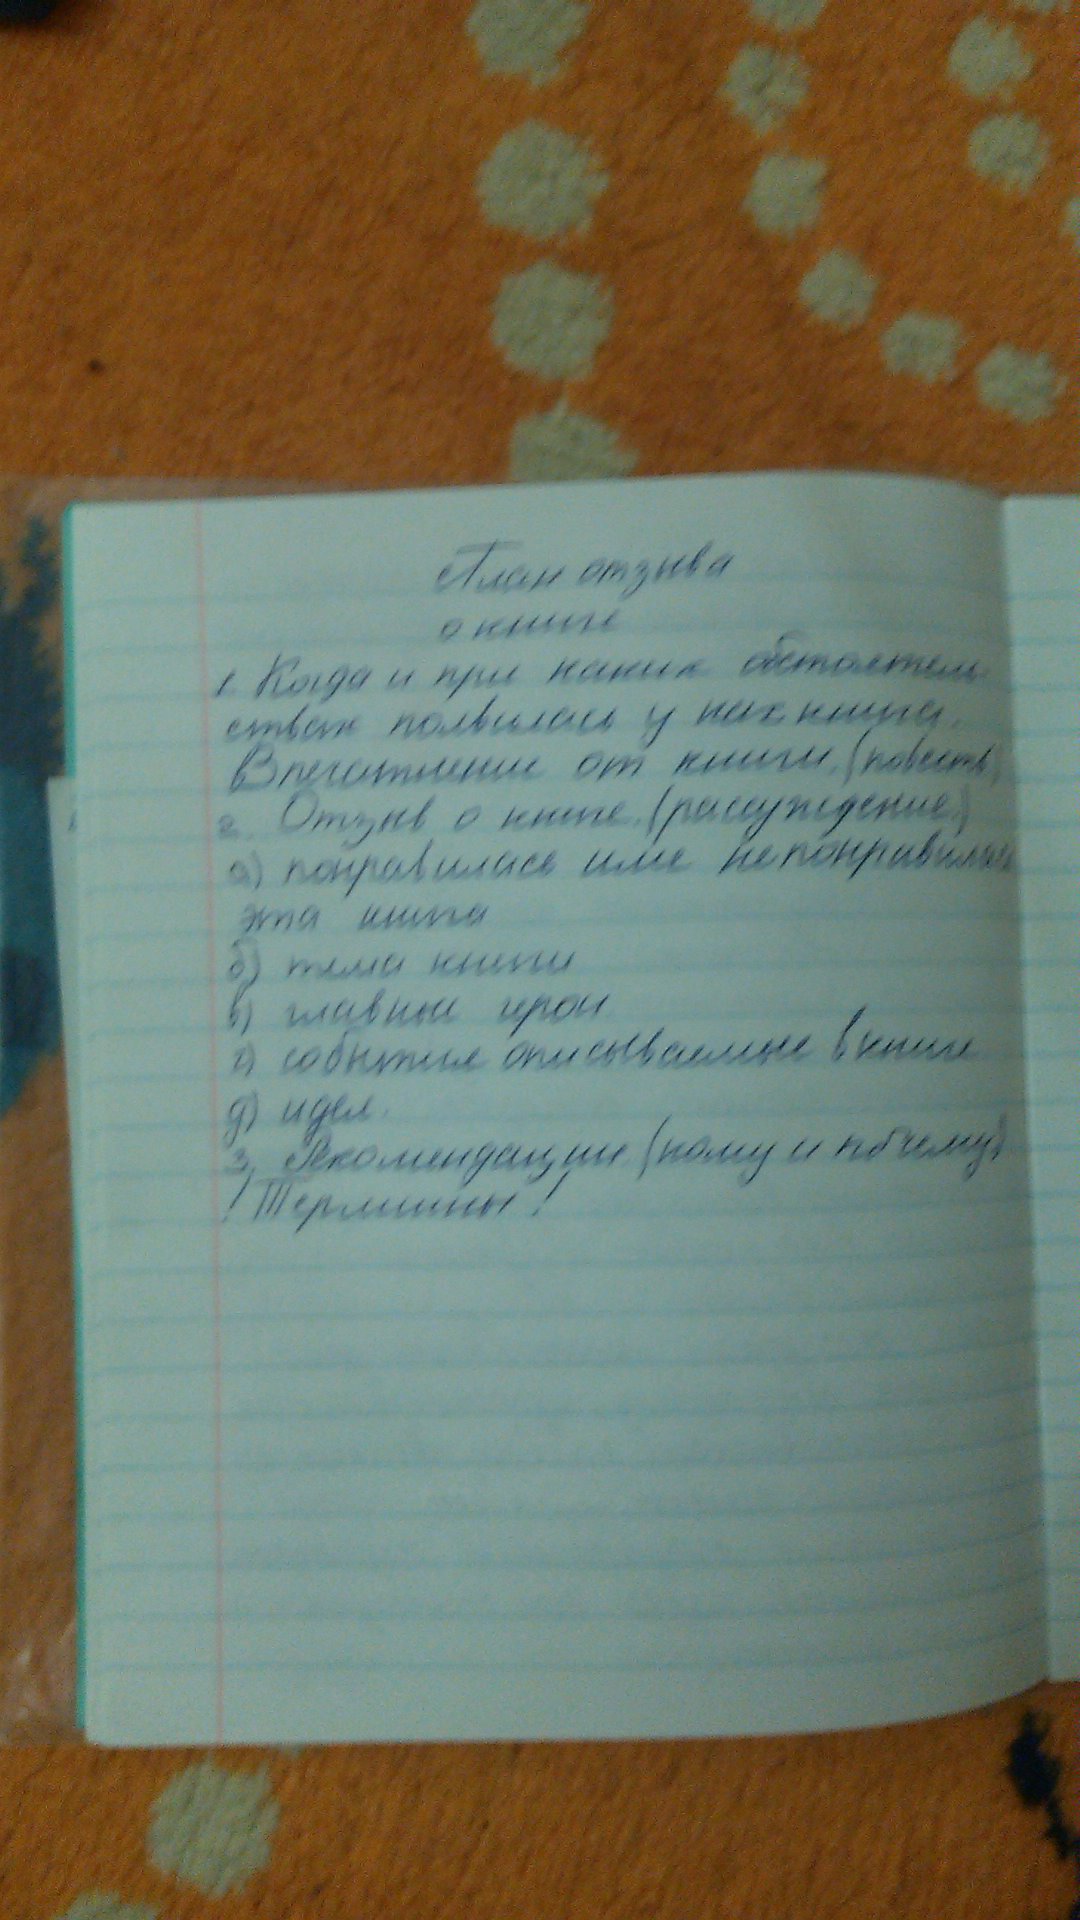 План отзыва
о книге
1. Когда и при каких обстоятель-
ствах появилась у нас книга.
Впечатление от книги. (повеств)
2. Отзыв о книге. (рассуждение.)
а) понравилась или непонравилась
эта книга
б) тема книги
в) главные герои
г) события описываемые в книге
д) идея.
3. Рекомендации (кому и почему)
! Термины!